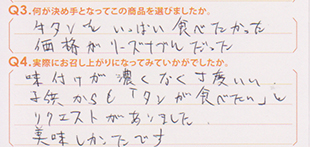 Q3.何が決め手となってこの商品を選びましたか。
牛タンをいっぱい食べたかった
価格がリーズナブルだった
Q4.実際にお召し上がりになってみていかがでしたか。
味付けが濃くなく丁度いい
子供からも「タンが食べたい」と
リクエストがありました
美味しかったです